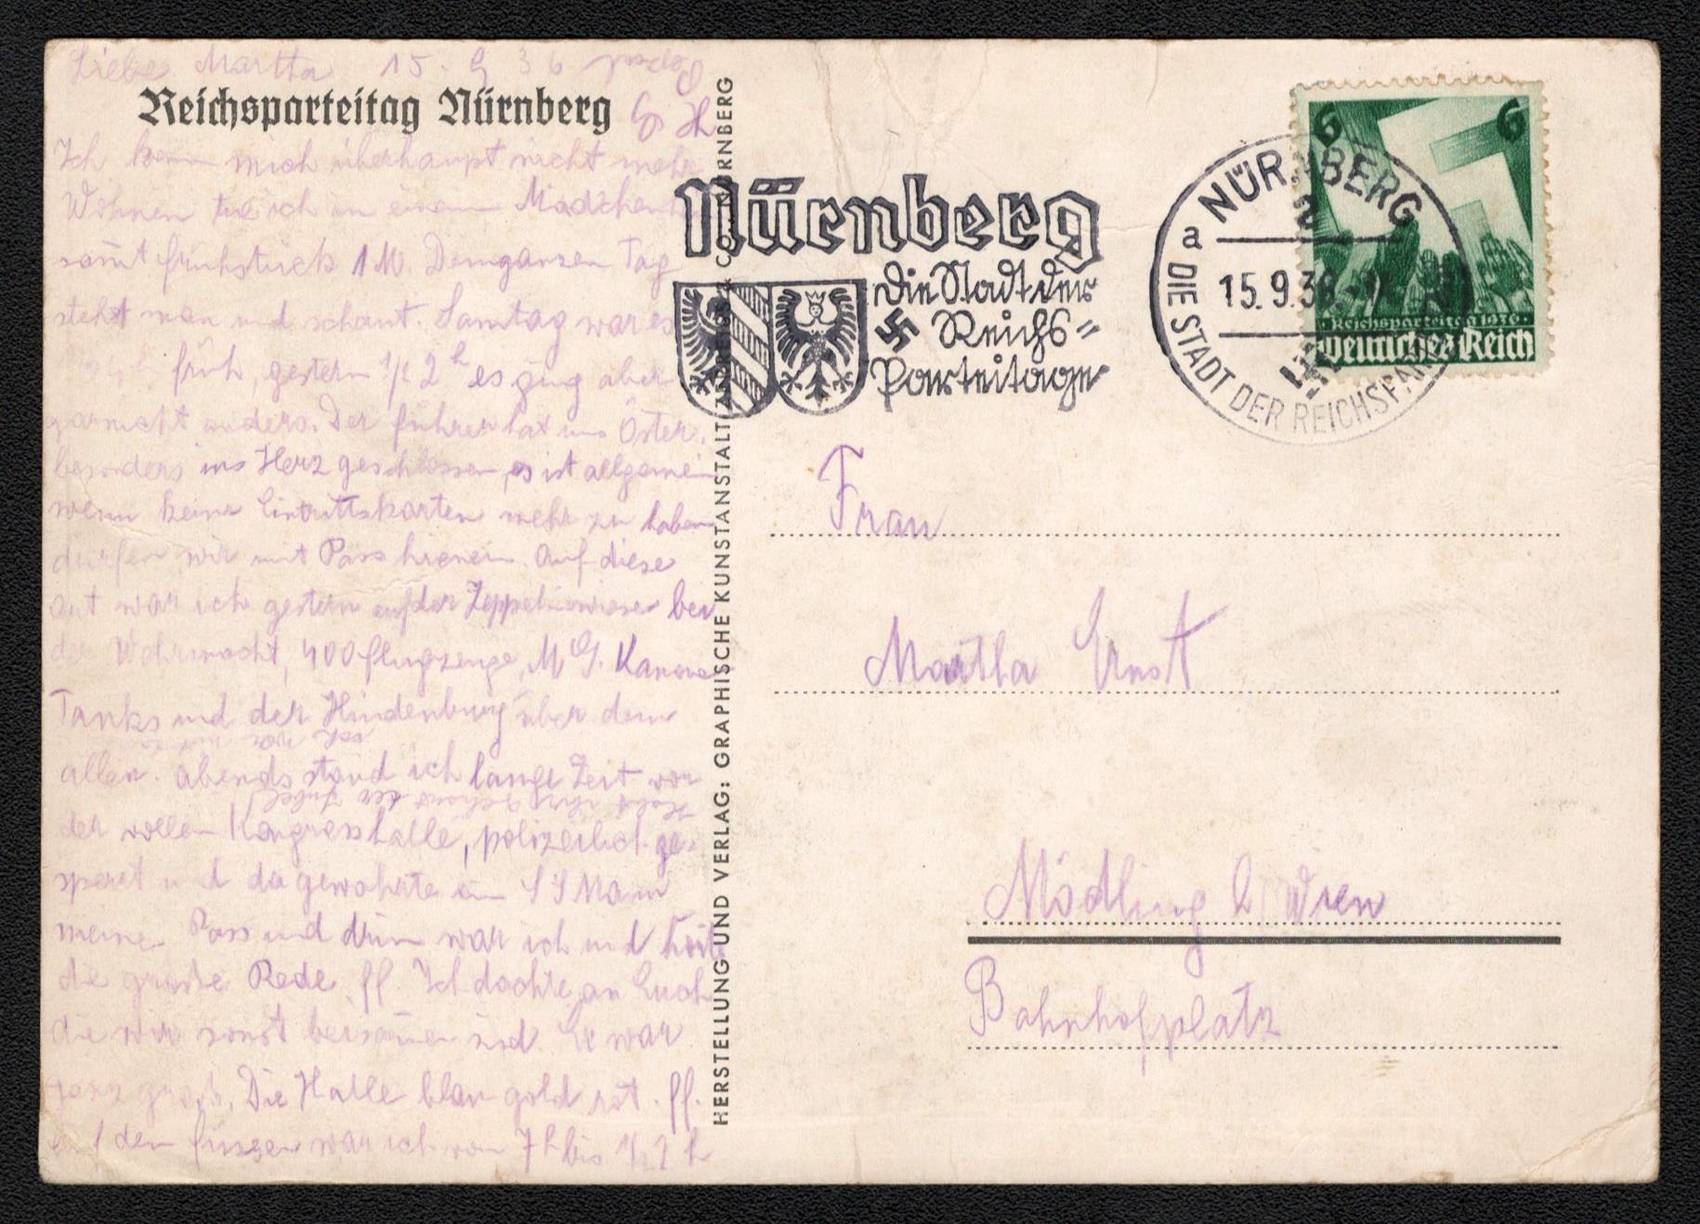 Liebe Martha 15. 9 36
Reichsparteitag Nürnberg
Ich kenn mich überhaupt nicht mehr
Wohnen tue ich in einem Mädchen
samt Frühstück 1 M. Dem ganzen Tag
steht man und schaut. Samtag war es
früh, gestern 1/2 2 h es ging aber
garnicht anders. Der Führer hat uns Öster.
besonders ins Herz geschlossen, es ist allgemein
wenn keine Eintrittskarten mehr zu haben
dürfen wir mit Pass hienein. Auf diese
Art war ich gestern auf der Zeppelinwiese bei
der Wehrmacht, 400 Flugzeuge, M.G. Kanonen
Tanks und der Hindenburg über dem
allen. Abends stand ich lange Zeit vor
der vollen Kongresshalle, polizeilich ge-
sperrt und da gewahrte ein SS Mann
meinen Pass und drin war ich und hörte
die große Rede ff. Ich dachte an Euch
die wir sonst beisamen sind. Es war
ganz groß. Die Halle blau gold rot. ff.
Auf den Füssen war ich von 7 h bis 1/2 2 h
HERSTELLUNG UND VERLAG: GRAPHISCHE KUNSTANSTALT ZERREISS & CO., NÜRNBERG
Nürnberg
Die Stadt der
Reichs-
Parteitage
NÜRNBERG
2
a
15.9.36
DIE STADT DER REICHSPAR
6 6
Reichsparteitag 1936
Deutsches Reich
Frau
Martha Ernst
Mödling b/ Wien
Bahnhofplatz